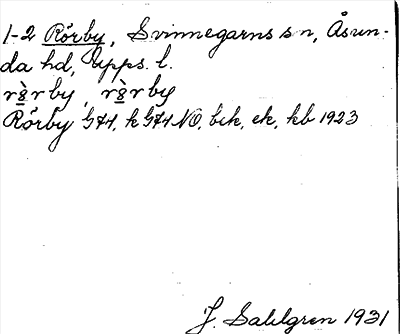 1-2 Rörby, Svinnegarns sn, Åsun-
da hd, Upps. l.
rö̀rby, rö̀rby
Rörby G74, k G74 NO, bik, ek, kb 1923
J. Sahlgren 1931